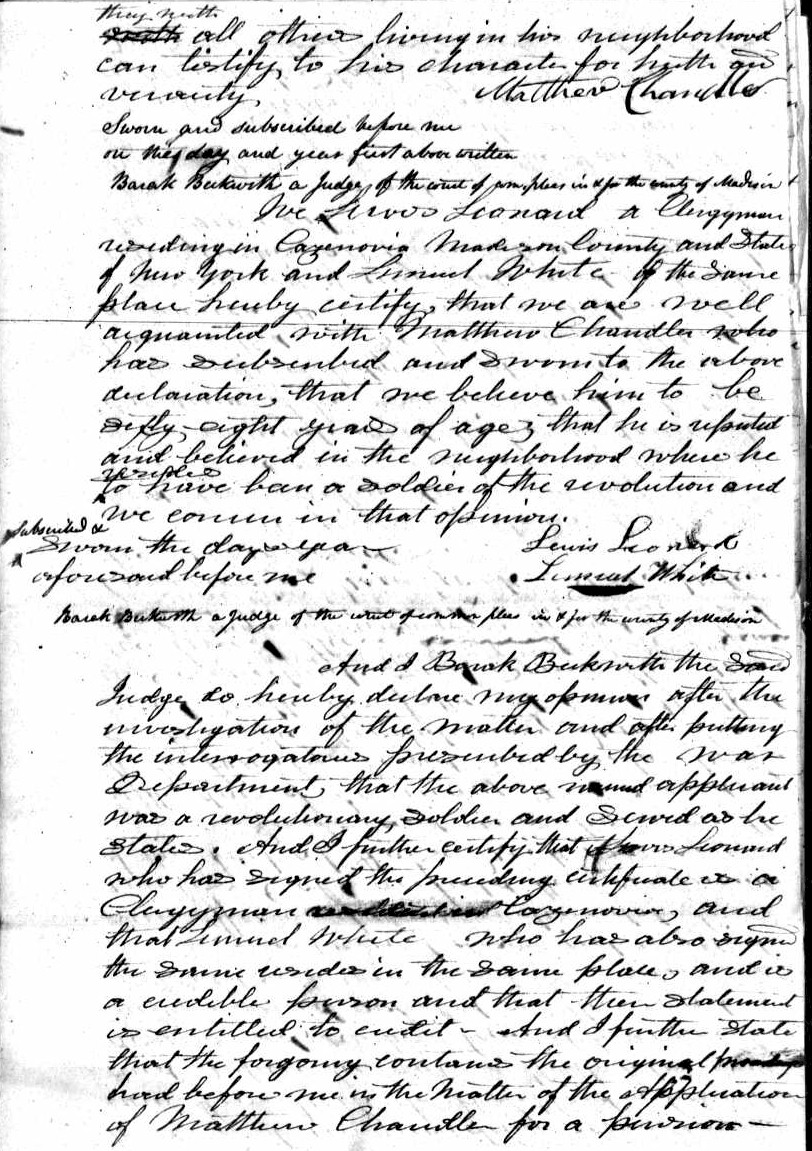 they with
all others living in his neighborhood
can testify to his character for truth and
veracity Matthew Chandler
Sworn and subscribed before me
on the day and year first above written
Barak Beckwith a Judge of the court of com pleas in & for the county of Madison
We Lewis Leonard a Clergyman
residing in Cazenovia Madison County and State
of New York and Lemuel White of the same
place hereby certify, that we are well
acquainted with Matthew Chandler who
has subscribed and sworn to the above
declaration, that we believe him to be
sixty eight years of age, that he is reputed
and believed in the neighborhood where he
resides
to have been a soldier of the revolution and
we concur in that opinion.
Subscribed &
Sworn the day & year Lewis Leonard
aforesaid before me Lemuel White
Barak Beckwith a Judge of the court of common pleas in & for the county of Madison
And I Barak Beckwith the said
Judge do hereby declare my opinion after the
investigation of the matter and after putting
the interrogatories prescribed by the war
Department, that the above named applicant
was a revolutionary soldier and served as he
states. And I further certify that Lewis Leonard
who has signed the preceding certificate is a
Clergyman Cazenovia, and
that Lemuel White who has also signed
the same resides in the same place, and is
a credible person and that their statement
is entitled to credit - And I further state
that the forgoing contains the original
had before me in the Matter of the Application
of Matthew Chandler for a pension -